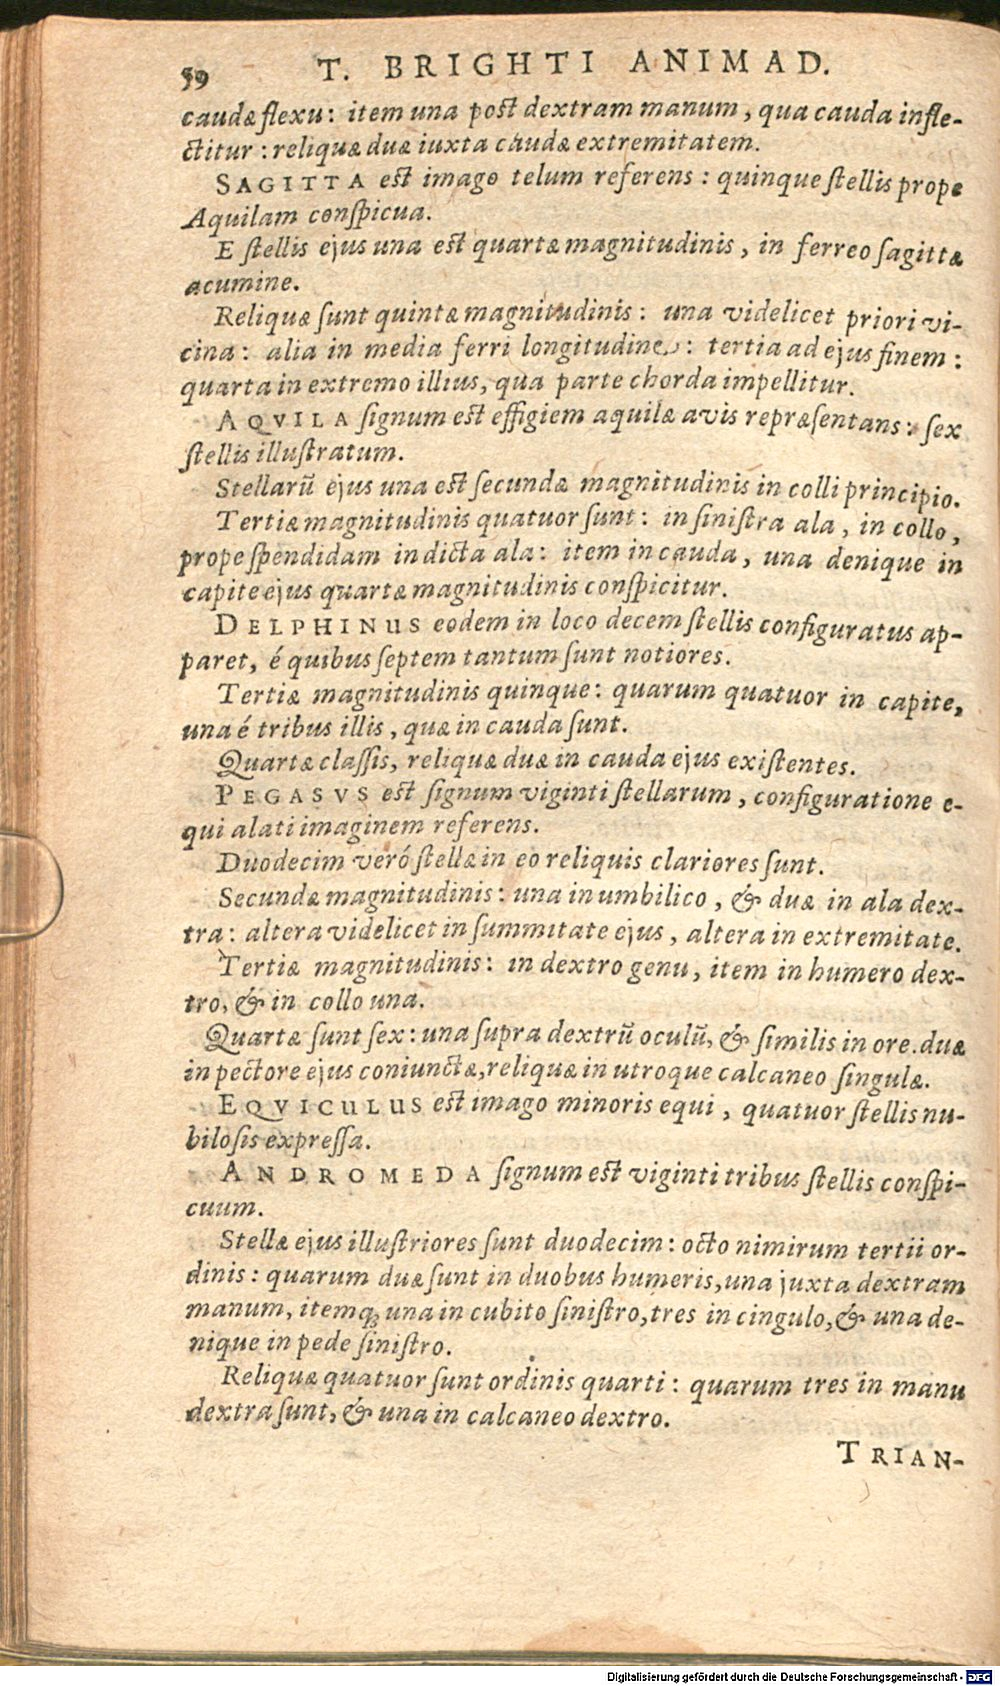 59 T. BRIGHTI ANIMAD.
caudæ flexu: item una post dextram manum, qua cauda infle-
ctitur: reliquæ duæ iuxta caudæ extremitatem.
SAGITTA est imago telum referens: quinque ſtellis prope
Aquilam conſpicua.
E ſtellis ejus una est quartæ magnitudinis, in ferreo ſagittæ
acumine.
Reliquæ ſunt quintæ magnitudinis: una videlicet priori vi-
cina: alia in media ferri longitudine: tertia ad ejus finem:
quarta in extremo illius, qua parte chorda impellitur.
AQVILA ſignum est effigiem aquilæ avis repræſentans: ſex
ſtellis illuſtratum.
Stellarũ ejus una est ſecundæ magnitudinis in colli principio.
Tertiæ magnitudinis quatuor ſunt: in ſiniſtra ala, in collo,
prope ſpendidam in dicta ala: item in cauda, una denique in
capite ejus quartæ magnitudinis conſpicitur.
DELPHINUS eodem in loco decem ſtellis configuratus ap-
paret, é quibus ſeptem tantum ſunt notiores.
Tertiæ magnitudinis quinque: quarum quatuor in capite,
una é tribus illis, quæ in cauda ſunt.
Quartæ claſſis, reliquæ duæ in cauda ejus exiſtentes.
PEGASVS est ſignum viginti ſtellarum, configuratione e-
qui alati imaginem referens.
Duodecim veró ſtellæ in eo reliquis clariores ſunt.
Secundæ magnitudinis: una in umbilico, & duæ in ala dex-
tra: altera videlicet in ſummitate ejus, altera in extremitate.
Tertiæ magnitudinis: in dextro genu, item in humero dex-
tro, & in collo una.
Quartæ ſunt ſex: una ſupra dextrũ oculũ, & ſimilis in ore. duæ
in pectore ejus coniunctæ, reliquæ in utroque calcaneo ſingulæ.
EQVICULUS est imago minoris equi, quatuor ſtellis nu-
biloſis expreſſa.
ANDROMEDA ſignum est viginti tribus ſtellis conſpi-
cuum.
Stellæ ejus illuſtriores ſunt duodecim: octo nimirum tertii or-
dinis: quarum duæ ſunt in duobus humeris, una juxta dextram
manum, itemq; una in cubito ſiniſtro, tres in cingulo, & una de-
nique in pede ſiniſtro.
Reliquæ quatuor ſunt ordinis quarti: quarum tres in manu
dextra ſunt, & una in calcaneo dextro.
TRIAN-
Digitalisierung gefördert durch die Deutsche Forschungsgemeinschaft - DFG